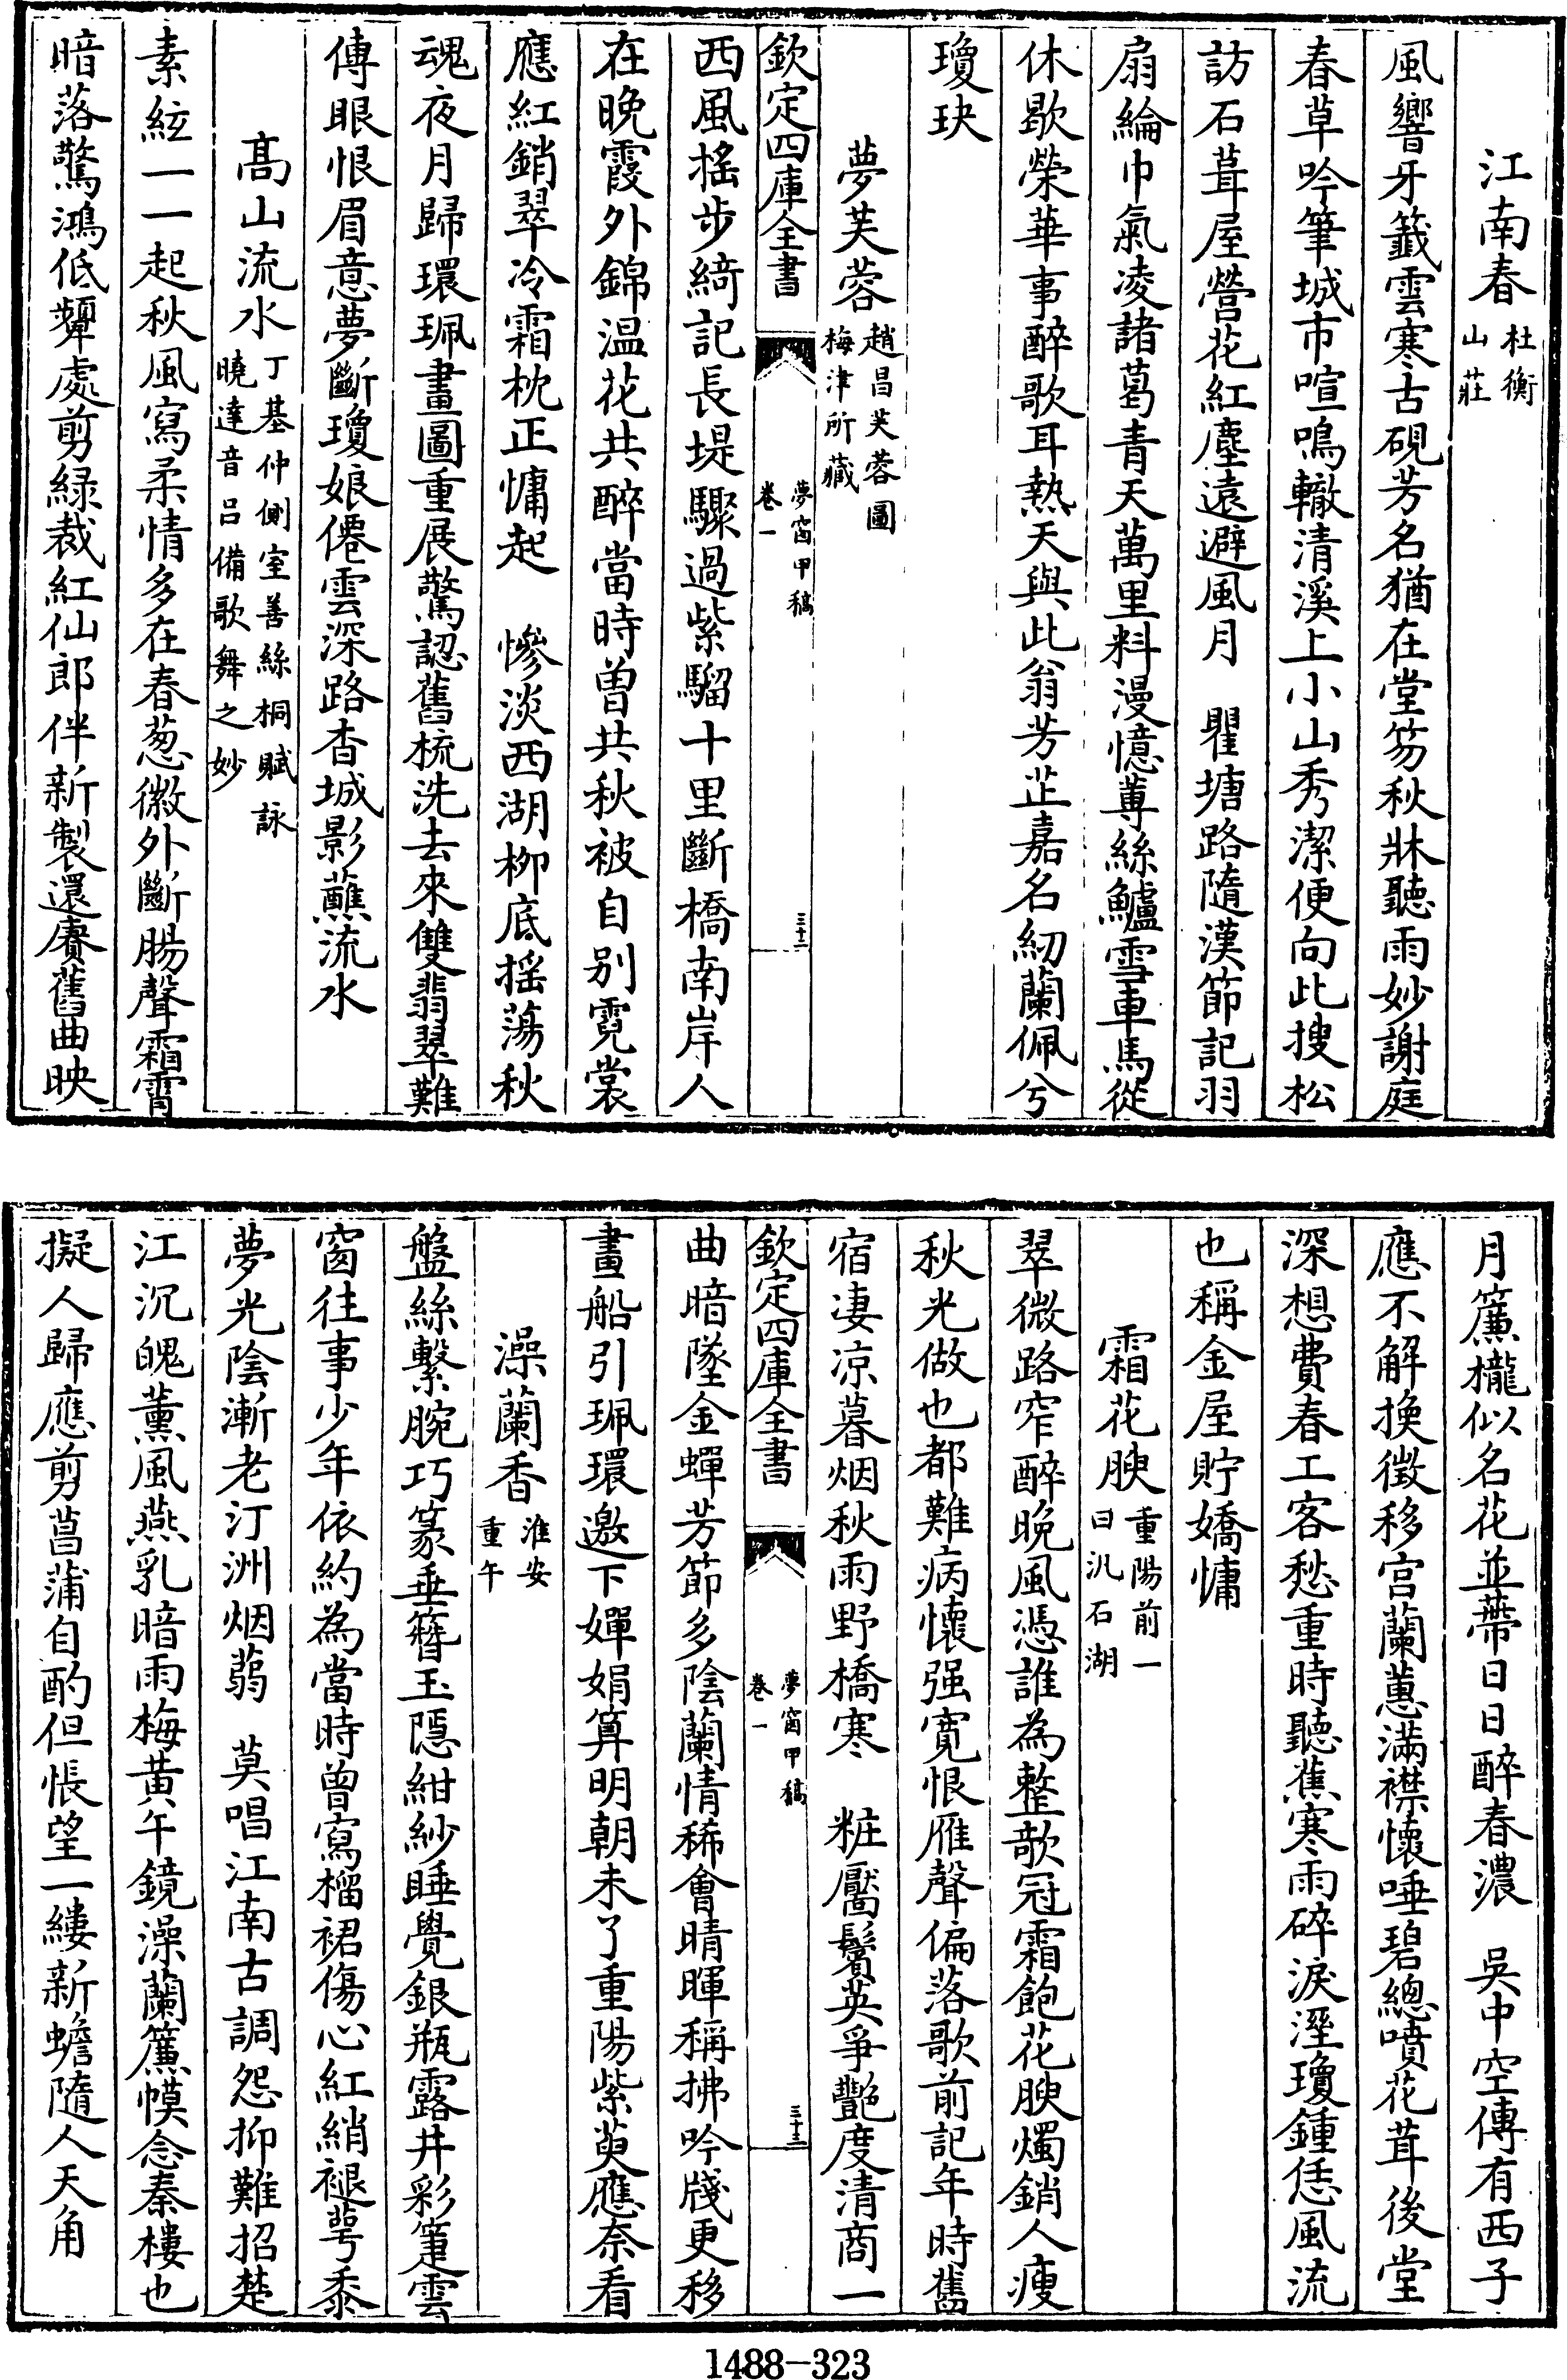 江南春杜衡山莊
風響牙籤雲寒古硯芳名猶在堂笏秋牀聽雨妙謝庭
春草吟筆城市喧鳴轍清溪上小山秀潔便向此搜松
訪石葺屋營花紅塵遠避風月　瞿塘路隨漢節記羽
扇綸巾氣凌諸葛青天萬里料漫憶蓴絲鱸雪車馬從
休歇榮華事醉歌耳熱天與此翁芳芷嘉名紉蘭佩兮
瓊玦
夢芙蓉趙昌芙蓉圖梅津所藏
欽定四庫全書　夢窗甲稿卷一　三十二
西風搖步綺記長堤驟過紫騮十里斷橋南岸人
在晚霞外錦温花共醉當時曾共秋被自别霓裳
應紅銷翠冷霜枕正慵起　慘淡西湖柳底摇蕩秋
魂夜月歸環珮畫圖重展驚認舊梳洗去來雙翡翠難
傳眼恨眉意夢斷瓊娘僊雲深路杳城影蘸流水
髙山流水丁基仲側室善絲桐賦詠曉達音吕備歌舞之妙
素絃一一起秋風寫柔情多在春葱徽外斷腸聲霜霄
暗落驚鴻低顰處剪緑裁紅仙郎伴新製還賡舊曲映
月簾櫳似名花並蔕日日醉春濃　吳中空傳有西子
應不解換徴移宫蘭蕙滿襟懷唾碧總噴花茸後堂
深想費春工客愁重時聽蕉寒雨碎淚溼瓊鍾恁風流
也稱金屋貯嬌慵
霜花腴重陽前一日汎石湖
翠微路窄醉晚風憑誰為整欹冠霜飽花腴燭銷人瘦
秋光做也都難病懷强寛恨雁聲偏落歌前記年時舊
宿凄凉暮烟秋雨野橋寒　粧靨鬢英爭艷度清商一
欽定四庫全書　夢窗甲稿卷一　三十三
曲暗墜金蟬芳節多陰蘭情稀會晴暉稱拂吟牋更移
畫船引珮環邀下嬋娟算明朝未了重陽紫萸應奈看
澡蘭香淮安重午
盤絲繫腕巧篆垂簪玉隠紺紗睡覺銀瓶露井彩箑雲
窗往事少年依約為當時曾寫榴裙傷心紅綃褪萼黍
夢光陰漸老汀洲烟蒻　莫唱江南古調怨抑難招楚
江沉魄薰風燕乳暗雨梅黄午鏡澡蘭簾幙念秦樓也
擬人歸應剪菖蒲自酌但悵望一縷新蟾隨人天角
1488-323